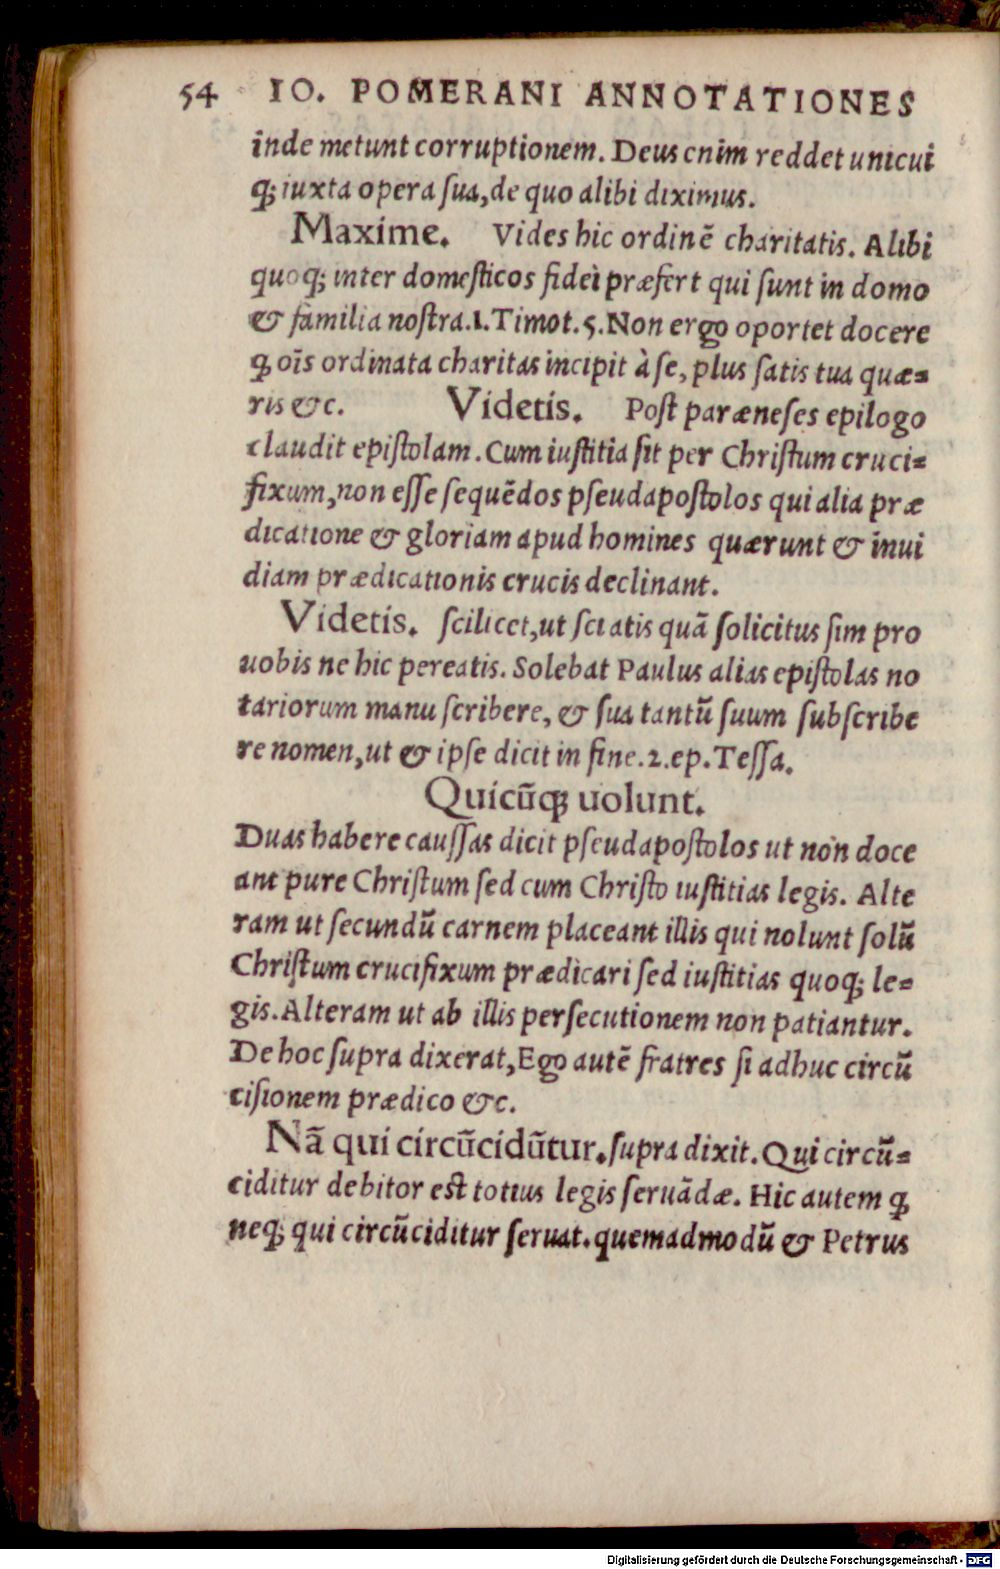 54 IO. POMERANI ANNOTATIONES
inde metunt corruptionem. Deus cnim reddet unicui
q; iuxta opera ſua, de quo alibi diximus.
Maxime. Vides hic ordinē charitatis. Alibi
quoq; inter domeſticos fidei præfert qui ſunt in domo
& familia noſtra. 1. Timot. 5. Non ergo oportet docere
ꝙ oīs ordinata charitas incipit à ſe, plus ſatis tua quæ=
ris &c. Videtis. Poſt paræneſes epilogo
claudit epiſtolam. Cum iuſtitia ſit per Chriſtum cruci=
fixum, non eſſe ſequēdos pſeudapoſtolos qui alia præ
dicatione & gloriam apud homines quærunt & inui
diam prædicationis crucis declinant.
Videtis. ſcilicet, ut ſciatis quā ſolicitus ſim pro
uobis ne hic pereatis. Solebat Paulus alias epiſtolas no
tariorum manu ſcribere, & ſua tantū ſuum ſubſcribe
re nomen, ut & ipſe dicit in fine. 2. ep. Teſſa.
Quicūq; uolunt.
Duas habere cauſſas dicit pſeudapoſtolos ut non doce
ant pure Chriſtum ſed cum Chriſto iuſtitias legis. Alte
ram ut ſecundū carnem placeant illis qui nolunt ſolū
Chriſtum crucifixum prædicari ſed iuſtitias quoq; le=
gis. Alteram ut ab illis perſecutionem non patiantur.
De hoc ſupra dixerat, Ego autē fratres ſi adhuc circū
ciſionem prædico &c.
Nā qui circūcidūtur. ſupra dixit. Qui circū=
ciditur debitor eſt totius legis ſeruādæ. Hic autem ꝙ
neq; qui circūciditur ſeruat. quemadmodū & Petrus
Digitalisierung gefördert durch die Deutsche Forschungsgemeinschaft - DFG